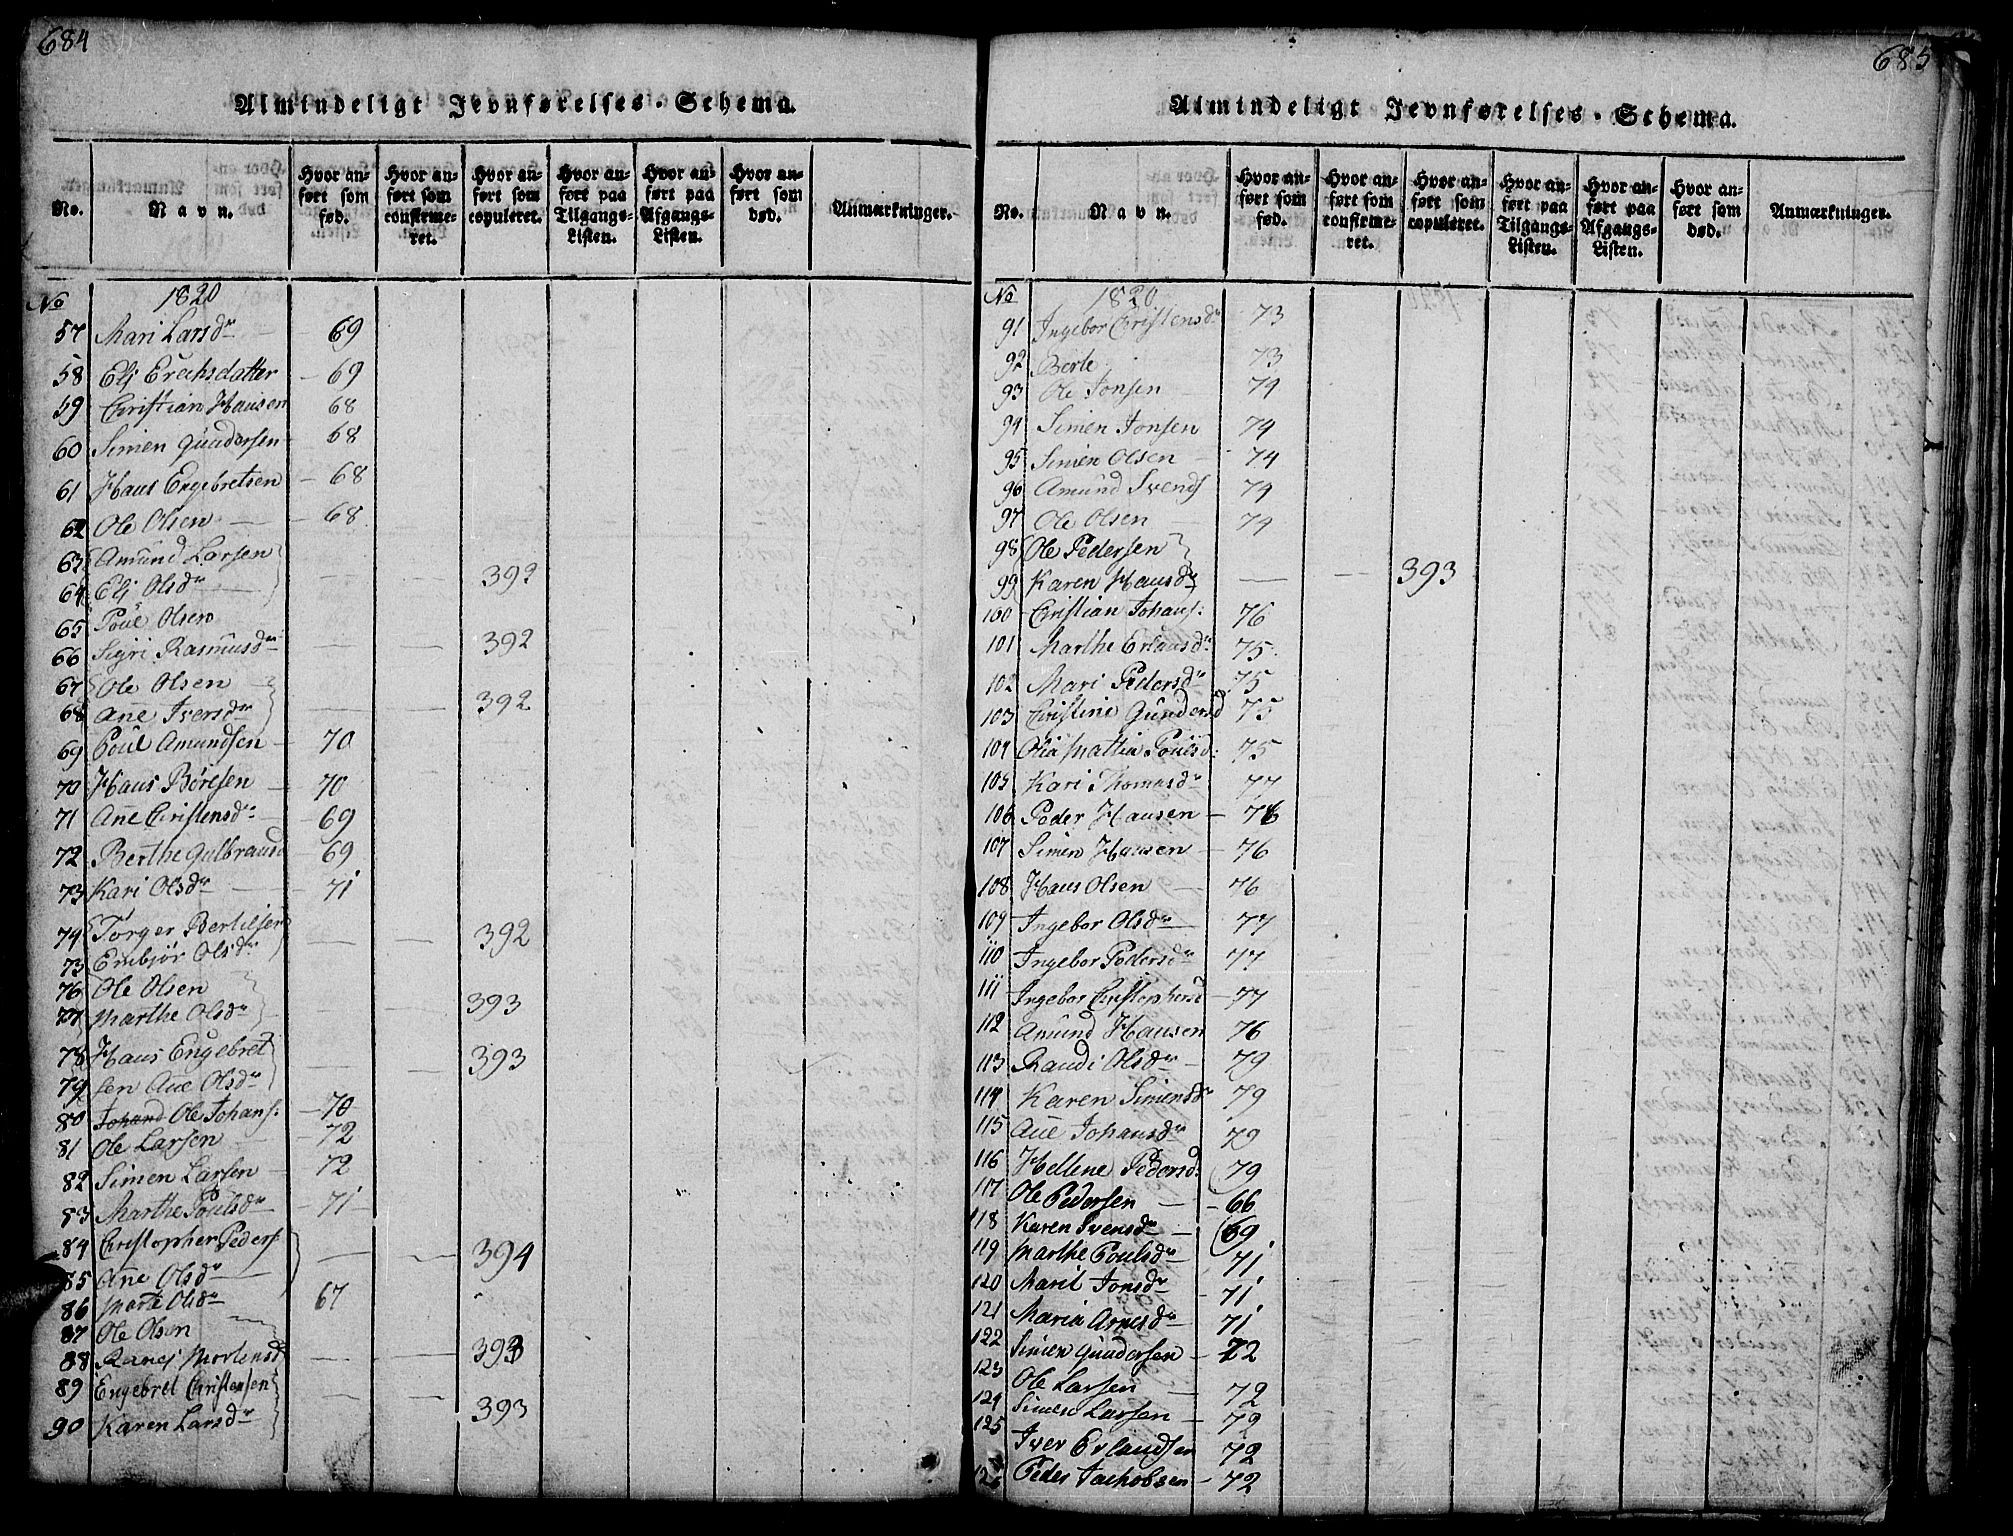 684
Almindeligt Jevnførelses-Schema.
No.
Navn.
Hvor anført som fød.
Hvor anført som confirmeret.
Hvor anført som copuleret.
Hvor anført paa Tilgangs-Listen.
Hvor anført paa Afgangs-Listen.
Hvor anført som død.
Anmærkninger.
No 1820
57 Mari Larsdr 69
58 Eli Erichsdatter 69
59 Christian Hansen 68
60 Simen Gundersen 68
61 Hans Engebretsen 68
62 Ole Olsen 68
63 Amund Larsen
64 Eli Olsdr 392
65 Poul Olsen
66 Sigri Rasmusdr 392
67 Ole Olsen
68 Ane Iversdr 392
69 Poul Amundsen 70
70 Hans Børesen 70
71 Ane Christensdr 69
72 Berthe Gulbransd 69
73 Kari Olsdr 71
74 Torger Bertilsen
73 Embjør Olsdr 392
76 Ole Olsen
77 Marthe Olsdr 393
78 Hans Engebret
79 sen Ane Olsdr 393
80 Johans: Ole 70
81 Ole Larsen 72
82 Simen Larsen 72
83 Marthe Poulsdr 71
84 Christopher Peders:
85 Ane Olsdr 394
86 Marte Olsdr 67
87 Ole Olsen
88 Mortensd 393
89 Engebret Christensen
90 Karen Larsdr 393
685
Almindeligt Jevnførelses-Schema.
No.
Navn.
Hvor anført som fød.
Hvor anført som confirmeret.
Hvor anført som copuleret.
Hvor anført paa Tilgangs-Listen.
Hvor anført paa Afgangs-Listen.
Hvor anført som død.
Anmærkninger.
No 1820
91 Ingebor Christensdr 73
92 Berte 73
93 Ole Jonsen 74
94 Simen Jonsen 74
95 Simen Olsen 74
96 Amund Svends 74
97 Ole Olsen 74
98 Ole Pedersen
99 Karen Hansdr 393
100 Christian Johans: 76
101 Marthe Erlansdr 75
102 Mari Pedersdr 75
103 Christine Gundersd 75
104 Olia Mattia Poulsd: 75
105 Kari Thomasdr 77
106 Peder Hansen 76
107 Simen Hansen 76
108 Hans Olsen 76
109 Ingebor Olsdr 77
110 Ingebor Pedersdr 77
111 Ingebor Christophersd 77
112 Amund Hansen 76
113 Randi Olsdr 79
114 Karen Simensdr 79
115 Ane Johansdr 79
116 Hellene Pedersd: 79
117 Ole Pedersen 66
118 Karen Svensdr 69
119 Marthe Poulsdr 71
120 Marit Jonsdr 71
121 Maria Arnesdr 71
122 Simen Gundersen 72
123 Ole Larsen 72
124 Simen Larsen 72
125 Iver Erlandsen 72
126 Peder Jachobsen 72